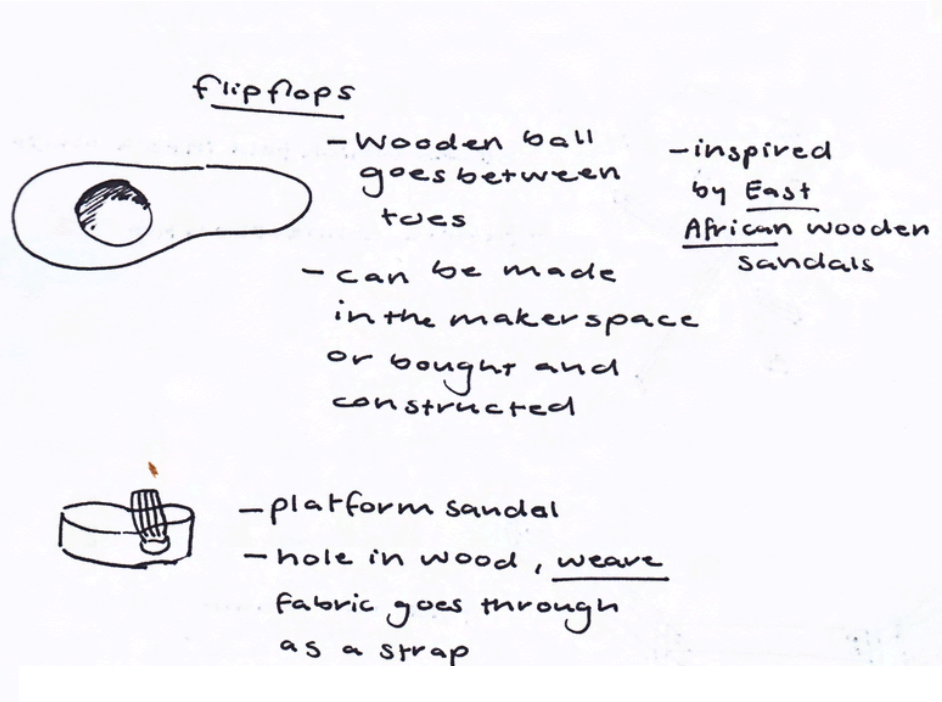 flipflops
- wooden ball
goes between
toes
- can be made
in the makerspace
or bought and
constructed
- inspired
by East
African wooden
sandals
- platform sandal
- hole in wood, weave
fabric goes through
as a strap